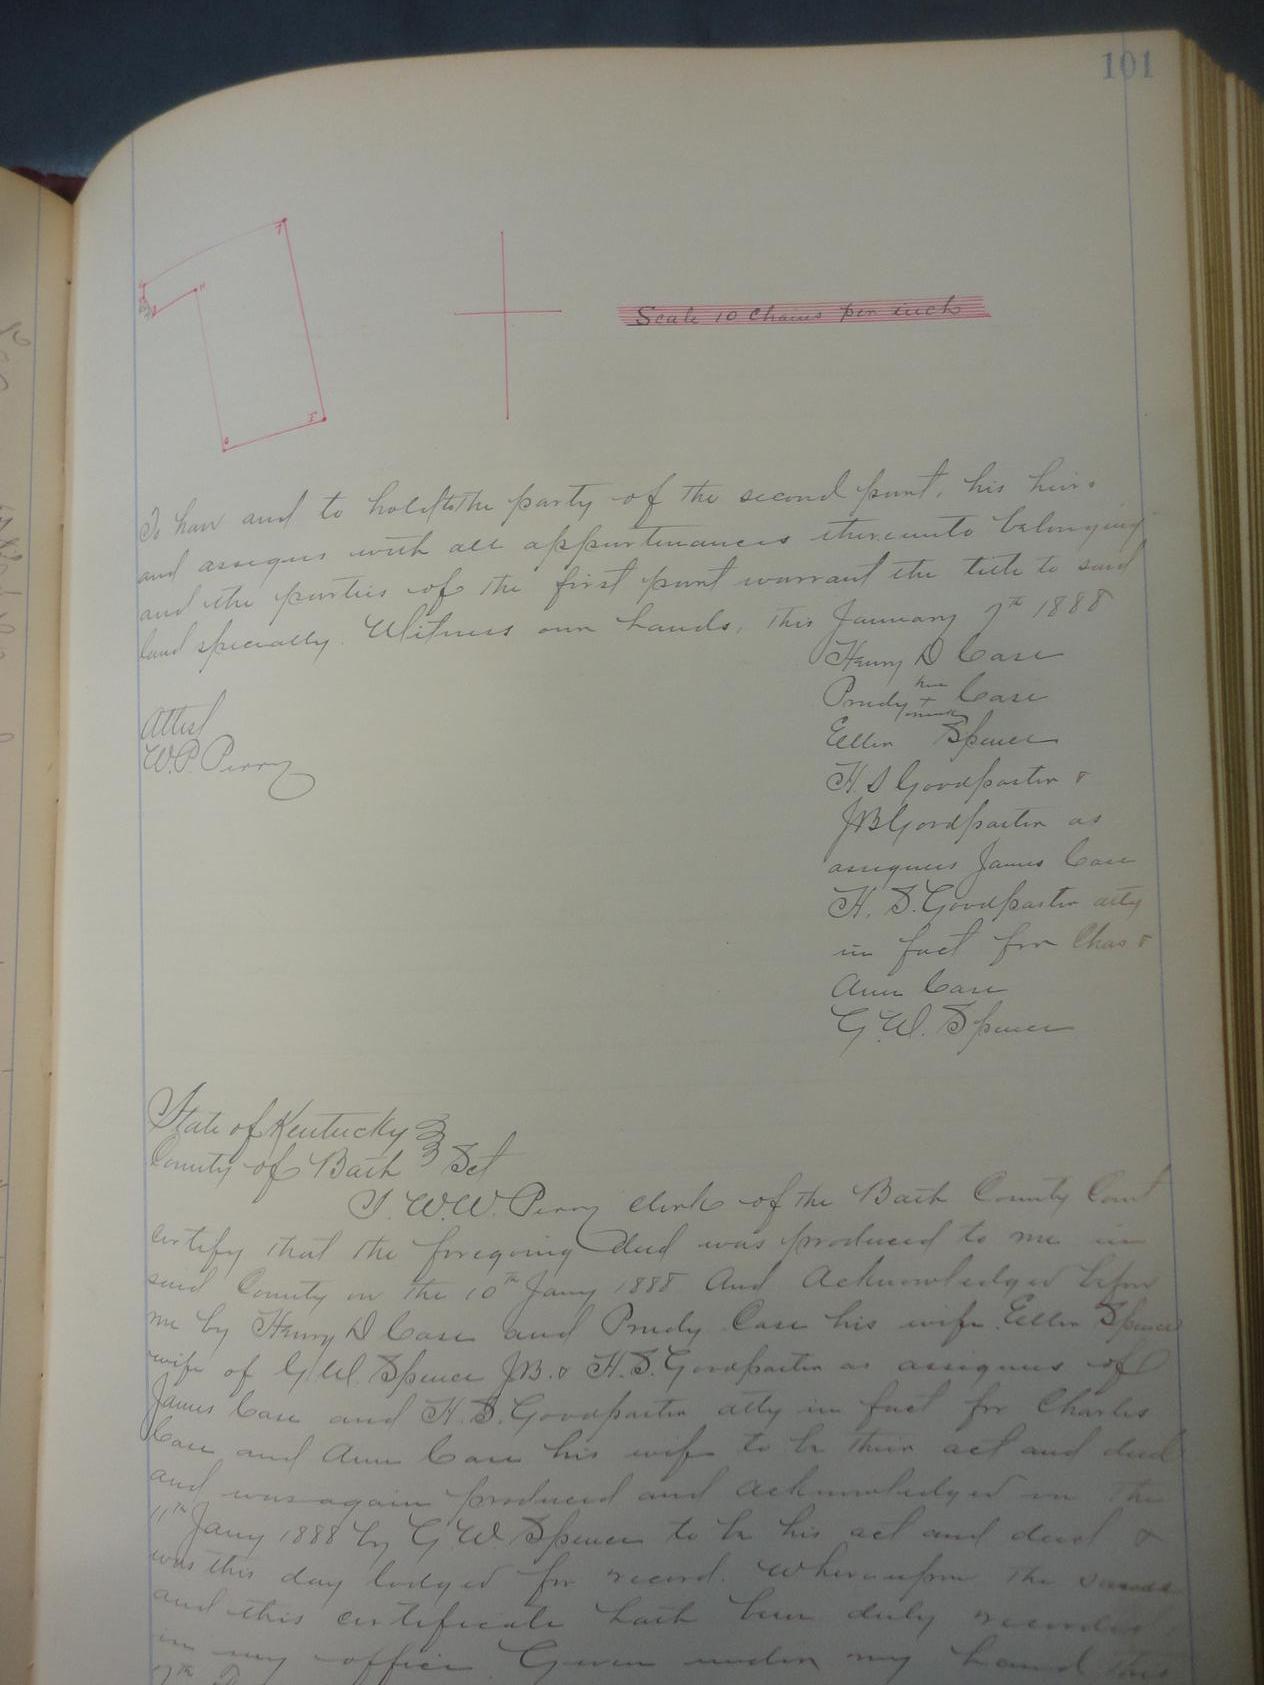 101
Scale 10 Chains per inch
To have and to hold to the party of the second part, his heirs
and assigns with all appurtenances thereunto belonging
and the parties of the first part warrant the title to said
land specially. Witness our hands, this January 7th 1888
Henry D Case
Prudy her + mark Case
Ellen Spencer
H. S Goodpaster &
JB Goodpaster as
assignees James Case
H. S. Goodpaster atty
in fact for Chas &
Ann Case
G. W. Spencer
Attest
W. P. Perry
State of Kentucky
County of Bath Sct
I. W. W. Perry clerk of the Bath County Court
certify that the foregoing deed was produced to me in
said County on the 10th Jany 1888 And Acknowledged before
me by Henry D Case and Prudy Case his wife Ellen Spencer
wife of G W. Spencer JB. & H. S. Goodpaster as assignees of
James Case and H. S. Goodpaster atty in fact for Charles
Case and Ann Case his wife to be their act and deed
and was again produced and acknowledged on the
11th Jany 1888 by G. W. Spencer to be his act and deed &
was this day lodged for record. Whereupon the same
and this certificate hath been duly recorded
in my office Given under my hand this